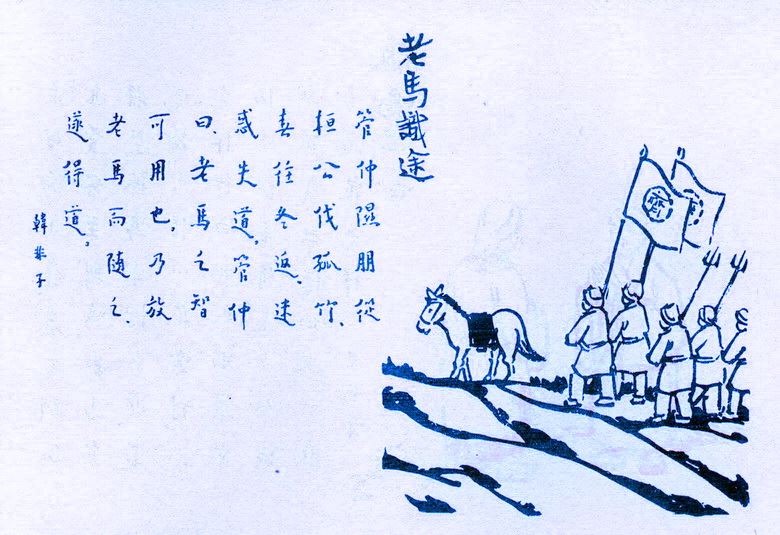 老馬識途
管仲隰朋從
桓公伐孤竹、
春往冬返、迷
惑失道。管仲
曰、老馬之智
可用也。乃放
老馬而隨之、
遂得道。
韓非子
齊